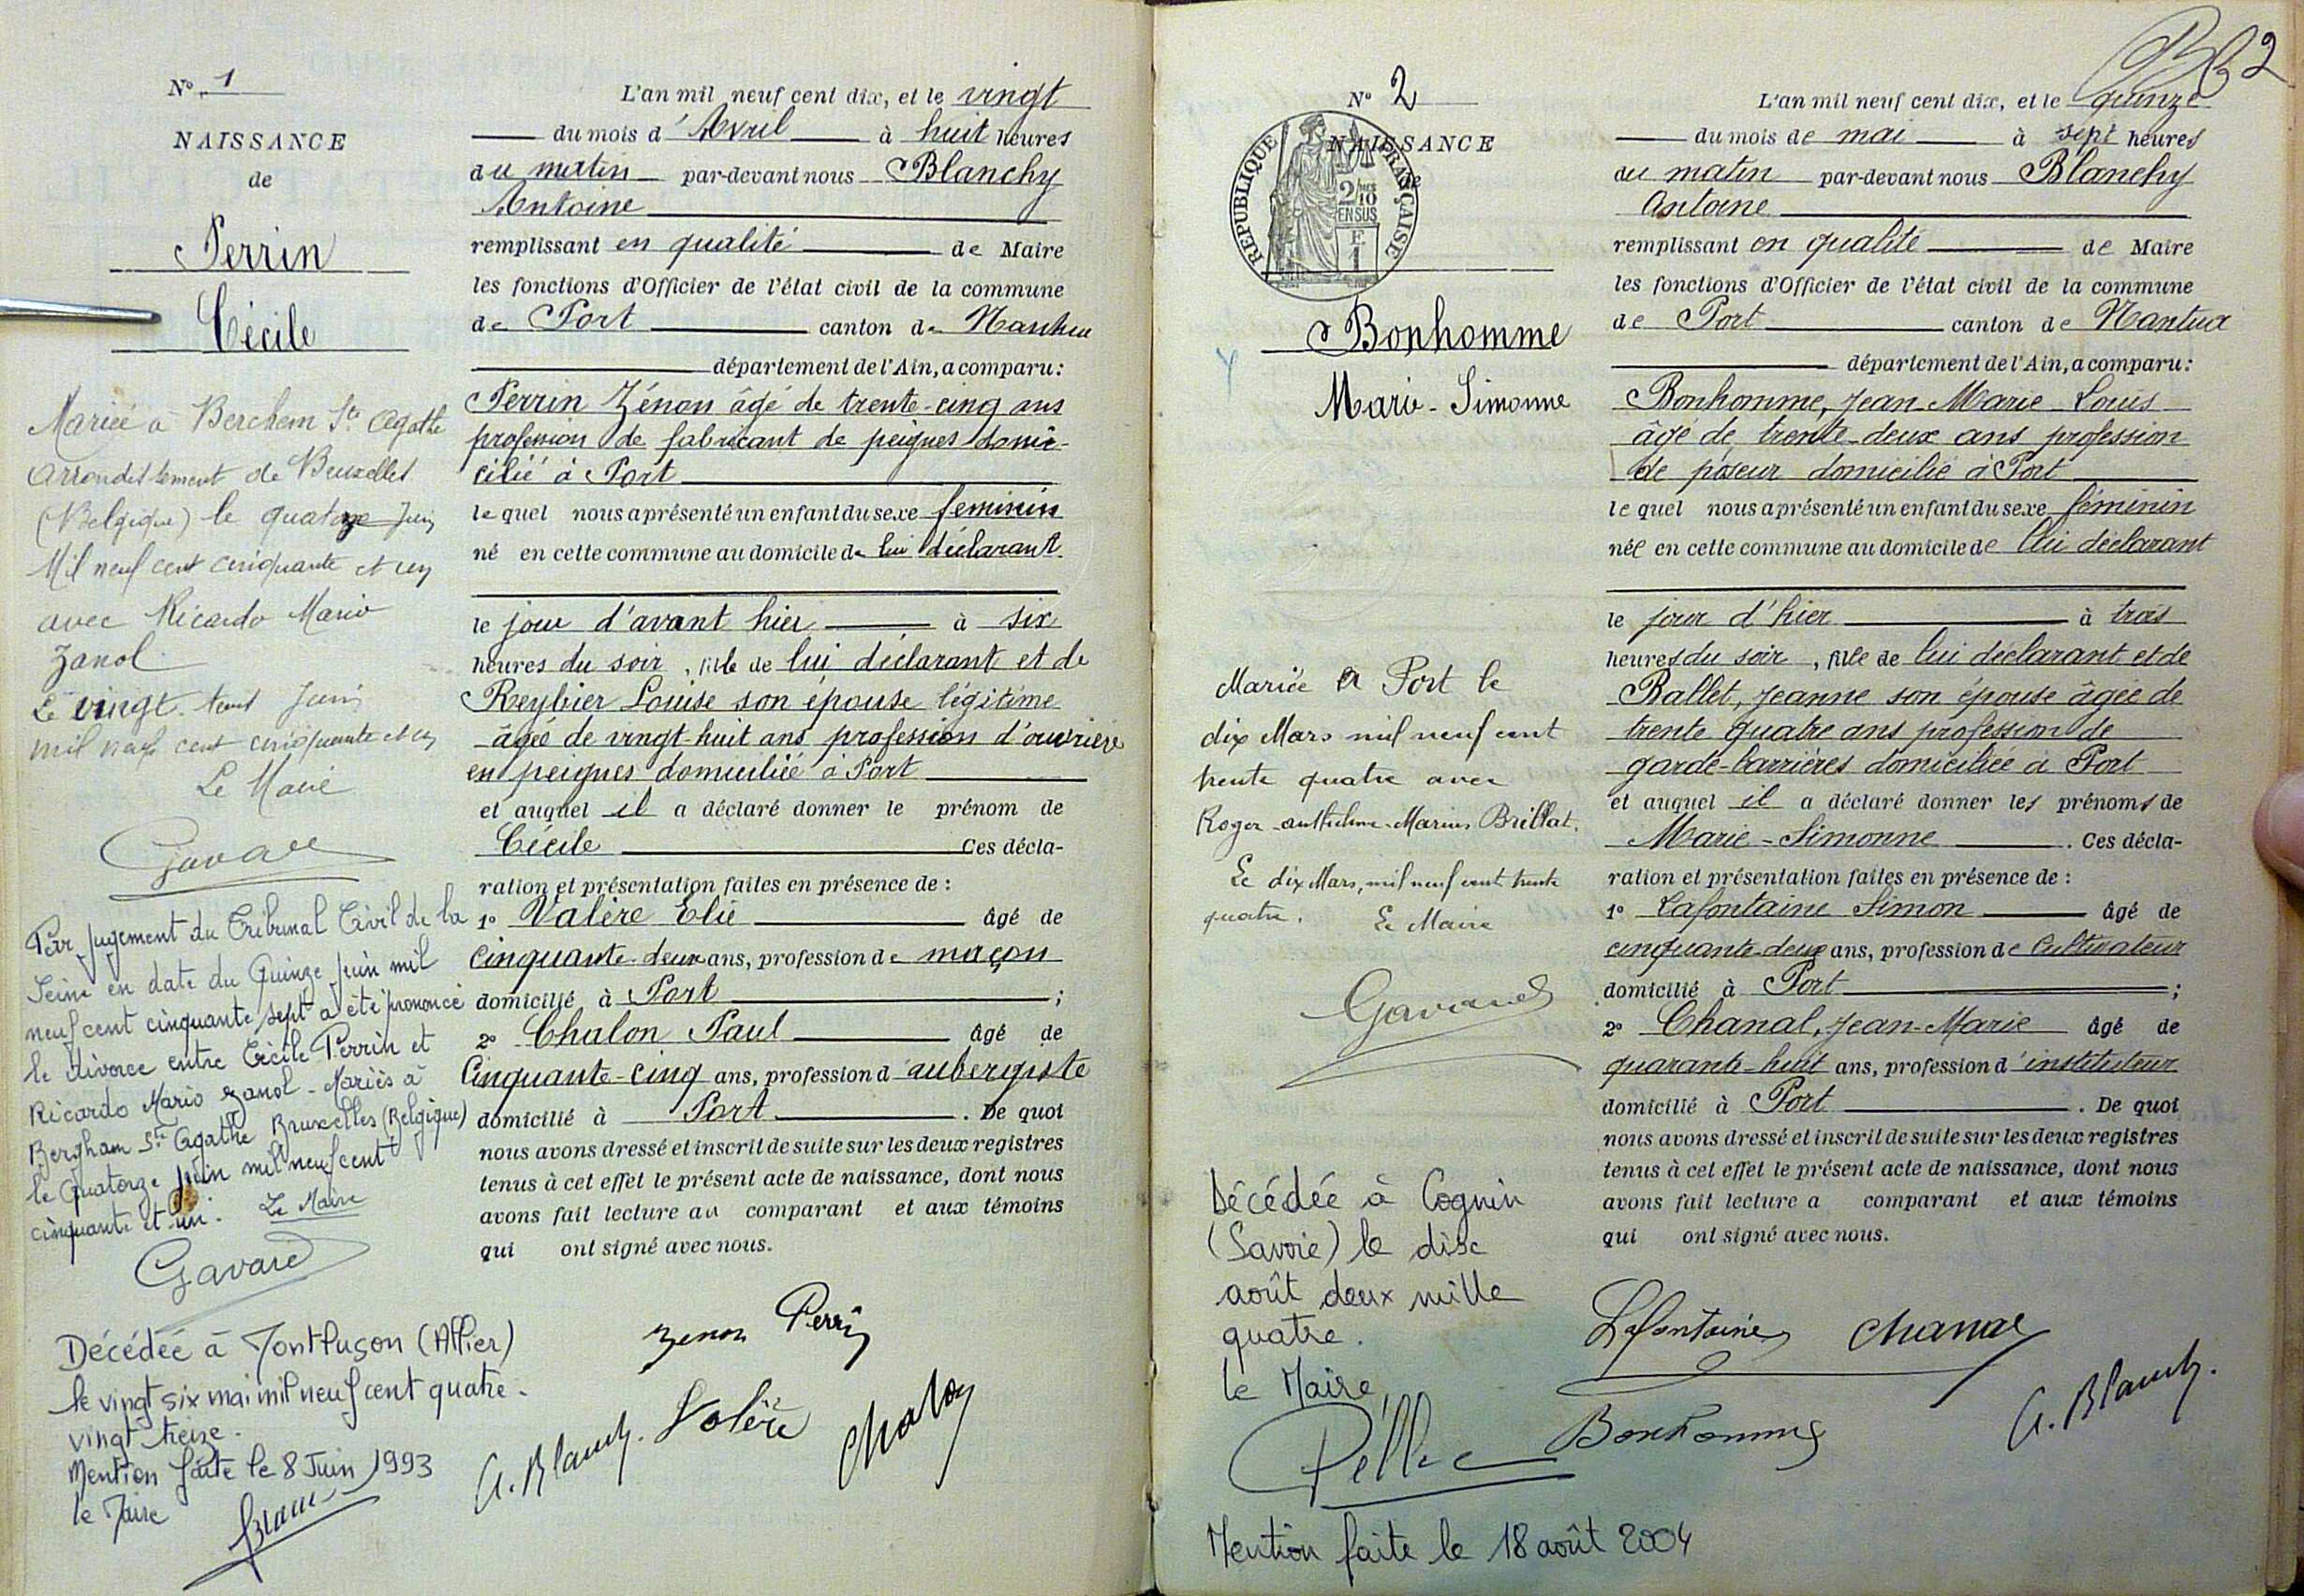 N° 1
NAISSANCE
de
Perrin
Cécile
Mariée à Berchem Ste Agathe
Arrondissement de Bruxelles
(Belgique) le quatorze Juin
Mil neuf cent cinquante et un
avec Ricardo Mario
Zanol.
Le vingt Juin
mil neuf cent cinquante et un
Le Maire
Gavard
Par jugement du Tribunal Civil de la
Seine en date du Quinze Juin mil
neuf cent cinquante sept a été prononcé
le divorce entre Cécile Perrin et
Ricardo Mario Zanol - Mariés à
Bergham Ste Agathe Bruxelles (Belgique)
le Quatorze Juin mil neuf cent
cinquante et un. Le Maire
Gavard
Décédée à Montluçon (Allier)
le vingt six mai mil neuf cent quatre-
vingt treize.
Mention faite le 8 Juin 1993
le Maire
L'an mil neuf cent dix, et le vingt
du mois d'Avril à huit heures
du matin par-devant nous Blanchy
Antoine
remplissant en qualité de Maire
les fonctions d'Officier de l'état civil de la commune
de Port canton de Nantua
département de l'Ain, a comparu:
Perrin Zénon âgé de trente-cinq ans
profession de fabricant de peignes domi-
cilié à Port
le quel nous a présenté un enfant du sexe féminin
né en cette commune au domicile de lui déclarant.
le jour d'avant hier à six
heures du soir, fille de lui déclarant et de
Reybier Louise son épouse légitime
âgée de vingt-huit ans profession d'ouvrière
en peignes domiciliée à Port
et auquel il a déclaré donner le prénom de
Cécile Ces décla-
ration et présentation faites en présence de :
1° Valère Elie âgé de
cinquante-deux ans, profession de maçon
domicilié à Port ;
2° Chalon Paul âgé de
Cinquante-cinq ans, profession d'aubergiste
domicilié à Port . De quoi
nous avons dressé et inscrit de suite sur les deux registres
tenus à cet effet le présent acte de naissance, dont nous
avons fait lecture au comparant et aux témoins
qui ont signé avec nous.
Zenon Perrin
A. Blanchy. Valère Chalon
2
N° 2
NAISSANCE
de
REPUBLIQUE FRANÇAISE
2/10
EN SUS
F
1
Bonhomme
Marie-Simonne
Mariée à Port le
dix Mars mil neuf cent
trente quatre avec
Roger-Anthelme-Marius Brillat.
Le dix Mars, mil neuf cent trente
quatre. Le Maire
Gavard
Décédée à Cognin
(Savoie) le dix
août deux mille
quatre.
Le Maire,
Mention faite le 18 août 2004
L'an mil neuf cent dix, et le quinze
du mois de mai à sept heures
du matin par-devant nous Blanchy
Antoine
remplissant en qualité de Maire
les fonctions d'Officier de l'état civil de la commune
de Port canton de Nantua
département de l'Ain, a comparu:
Bonhomme, Jean-Marie Louis
âgé de trente-deux ans profession
de poseur domicilié à Port
le quel nous a présenté un enfant du sexe féminin
née en cette commune au domicile de lui déclarant
le jour d'hier à trois
heures du soir, fille de lui déclarant et de
Ballet, Jeanne son épouse âgée de
trente quatre ans profession de
garde-barrières domiciliée à Port
et auquel il a déclaré donner les prénoms de
Marie-Simonne . Ces décla-
ration et présentation faites en présence de :
1° Lafontaine Simon âgé de
cinquante-deux ans, profession de Cultivateur
domicilié à Port ;
2° Chanal, Jean-Marie âgé de
quarante-huit ans, profession d'instituteur
domicilié à Port . De quoi
nous avons dressé et inscrit de suite sur les deux registres
tenus à cet effet le présent acte de naissance, dont nous
avons fait lecture a comparant et aux témoins
qui ont signé avec nous.
Lafontaine Chanal
Bonhomme A. Blanchy.